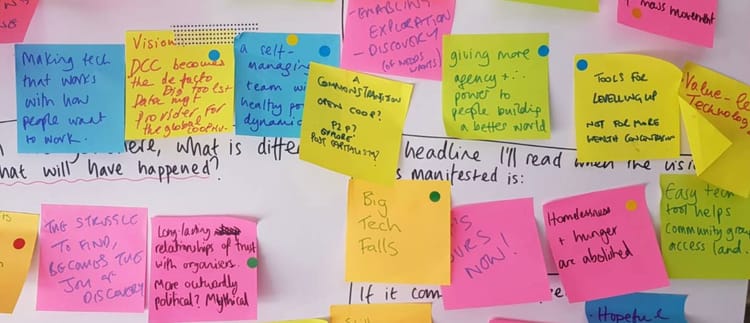 ENABLING
EXPLORATION
- DISCOVERY
(OF NEEDS
WANTS)
MASS MOVEMENT
Making tech
that works
with how
people want
to work.
Vision
DCC becomes
the de facto
Digi toolst
Data mgt
Provider for
the global
a self-
managing
team with
healthy po
dynamic
A
OPEN COOP?
P2P?
POST CAPITALISM?
giving more
agency +
power to
people building
a better world
TOOLS FOR
LEVELLING UP
NOT FOR MORE
WEALTH CONCENTRATION
Value-
Technolog
here, what is diffe
what will have happened?
headline I'll read when the visi
s manifested is:
THE STRUGGLE
TO FIND,
BECOMES THE
JOY OF
DISCOVERY
Long-lasting
relationships of trust
with organisers.
More outwardly
political? Mythical
Big
Tech
Falls
IS
OURS
NOW!
Homelessness
+ hunger
are abolished
Easy tech
tool helps
community group
access land.
If it com
Hopeful